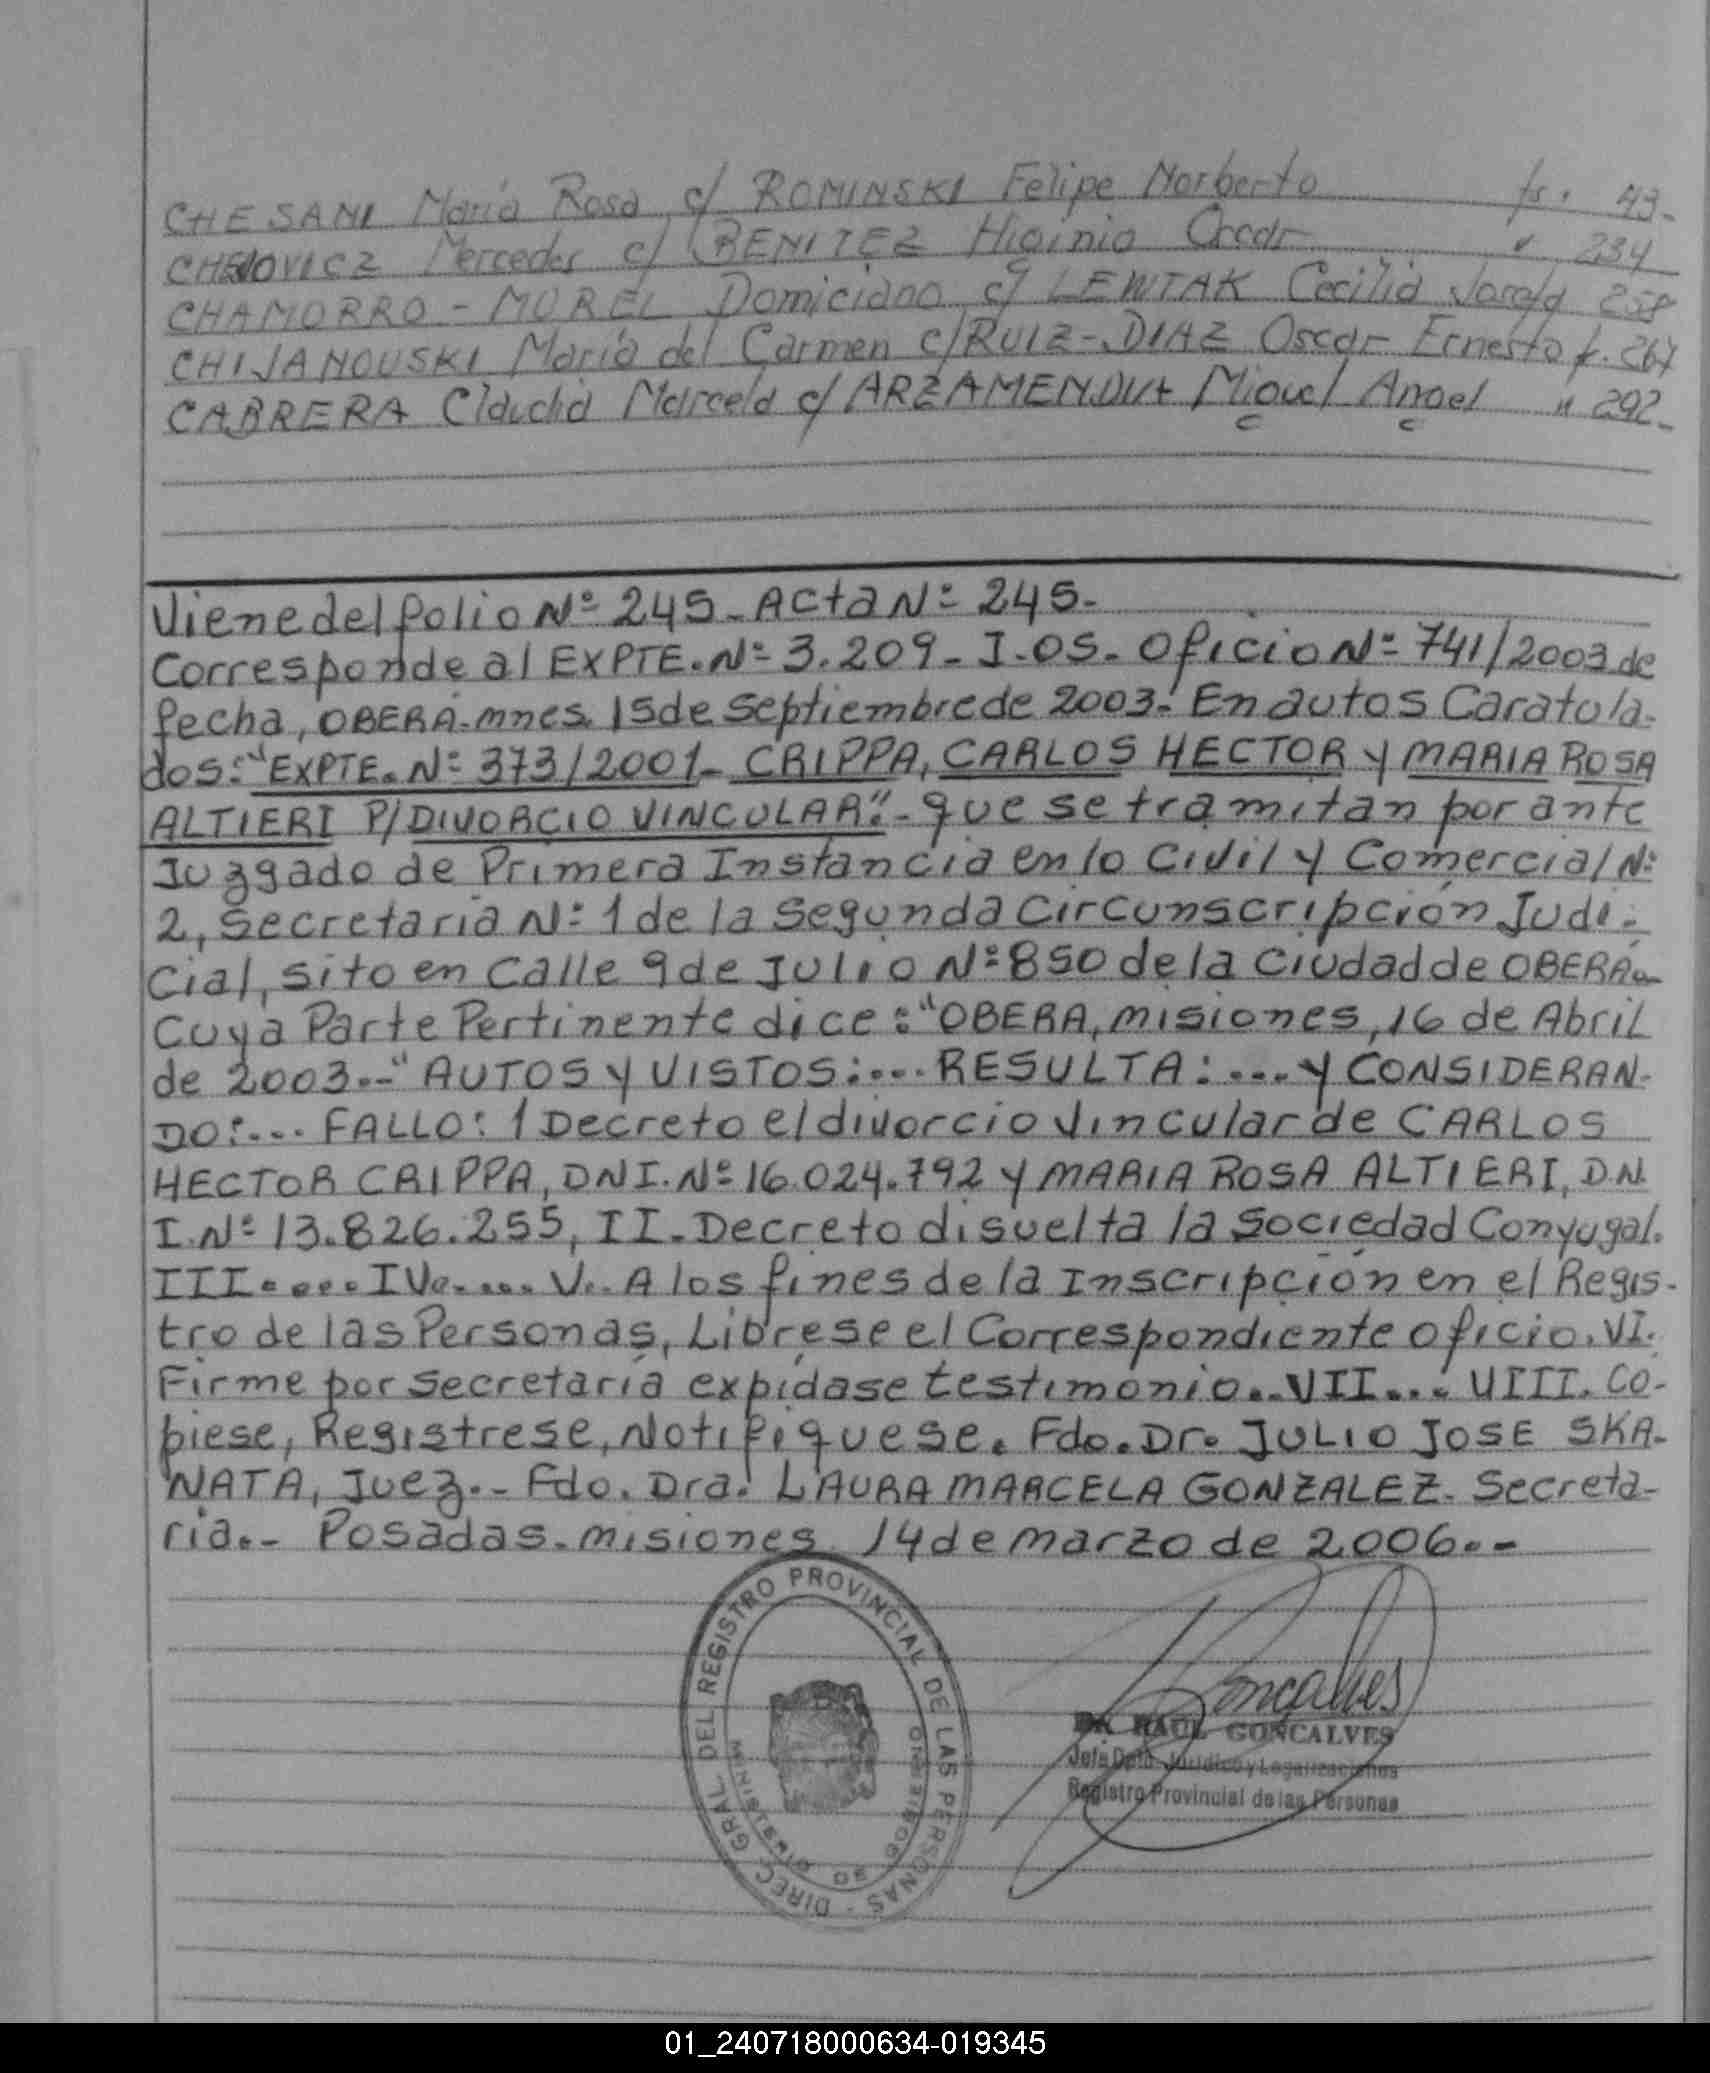 CHESANI María Rosa c/ ROMINSKI Felipe Norberto fs. 43.-
Mercedes c/ BENITEZ Higinio Oscar " 234
CHAMORRO - MOREL Domiciano c/ LEWTAK Cecilia 258
CHIJANOUSKI María del Carmen c/ RUIZ-DIAZ Oscar Ernesto f. 267
CABRERA Claudia Marcela c/ ARZAMENDIA Miguel Angel " 292.-
Viene del folio Nº 245 - Acta Nº 245.-
Corresponde al EXPTE. Nº 3.209 - J - 05 - Oficio Nº 741/2003 de
fecha, OBERA - mnes. 15 de Septiembre de 2003.- En autos Caratula-
dos: "EXPTE. Nº 373/2001 - CRIPPA, CARLOS HECTOR Y MARIA ROSA
ALTIERI P/DIVORCIO VINCULAR".- que se tramitan por ante
Juzgado de Primera Instancia en lo Civil y Comercial Nº
2, Secretaría Nº 1 de la Segunda Circunscripción Judi-
cial, sito en calle 9 de Julio Nº 850 de la Ciudad de OBERA.-
Cuya Parte Pertinente dice: "OBERA, misiones, 16 de Abril
de 2003.-" AUTOS Y VISTOS:... RESULTA:... Y CONSIDERAN-
DO:... FALLO: 1 Decreto el divorcio vincular de CARLOS
HECTOR CRIPPA, DNI. Nº 16.024.792 Y MARIA ROSA ALTIERI, D.N.
I. Nº 13.826.255, II. Decreto disuelta la Sociedad Conyugal.
III..... IV..... V.. A los fines de la Inscripción en el Regis-
tro de las Personas, Librese el Correspondiente oficio. VI.
Firme por Secretaría expídase testimonio.. VII.... VIII. Co-
piese, Registrese, Notifíquese. Fdo. Dr. JULIO JOSE SKA-
NATA, Juez.- Fdo. Dra. LAURA MARCELA GONZALEZ. Secreta-
ria.- Posadas - misiones, 14 de marzo de 2006.--
DIREC. GRAL. DEL REGISTRO PROVINCIAL DE LAS PERSONAS -
MINISTERIO DE GOBIERNO
Goncalves
DR. RAUL GONCALVES
Jefe Dpto. Jurídico y Legalizaciones
Registro Provincial de las Personas
01_240718000634-019345